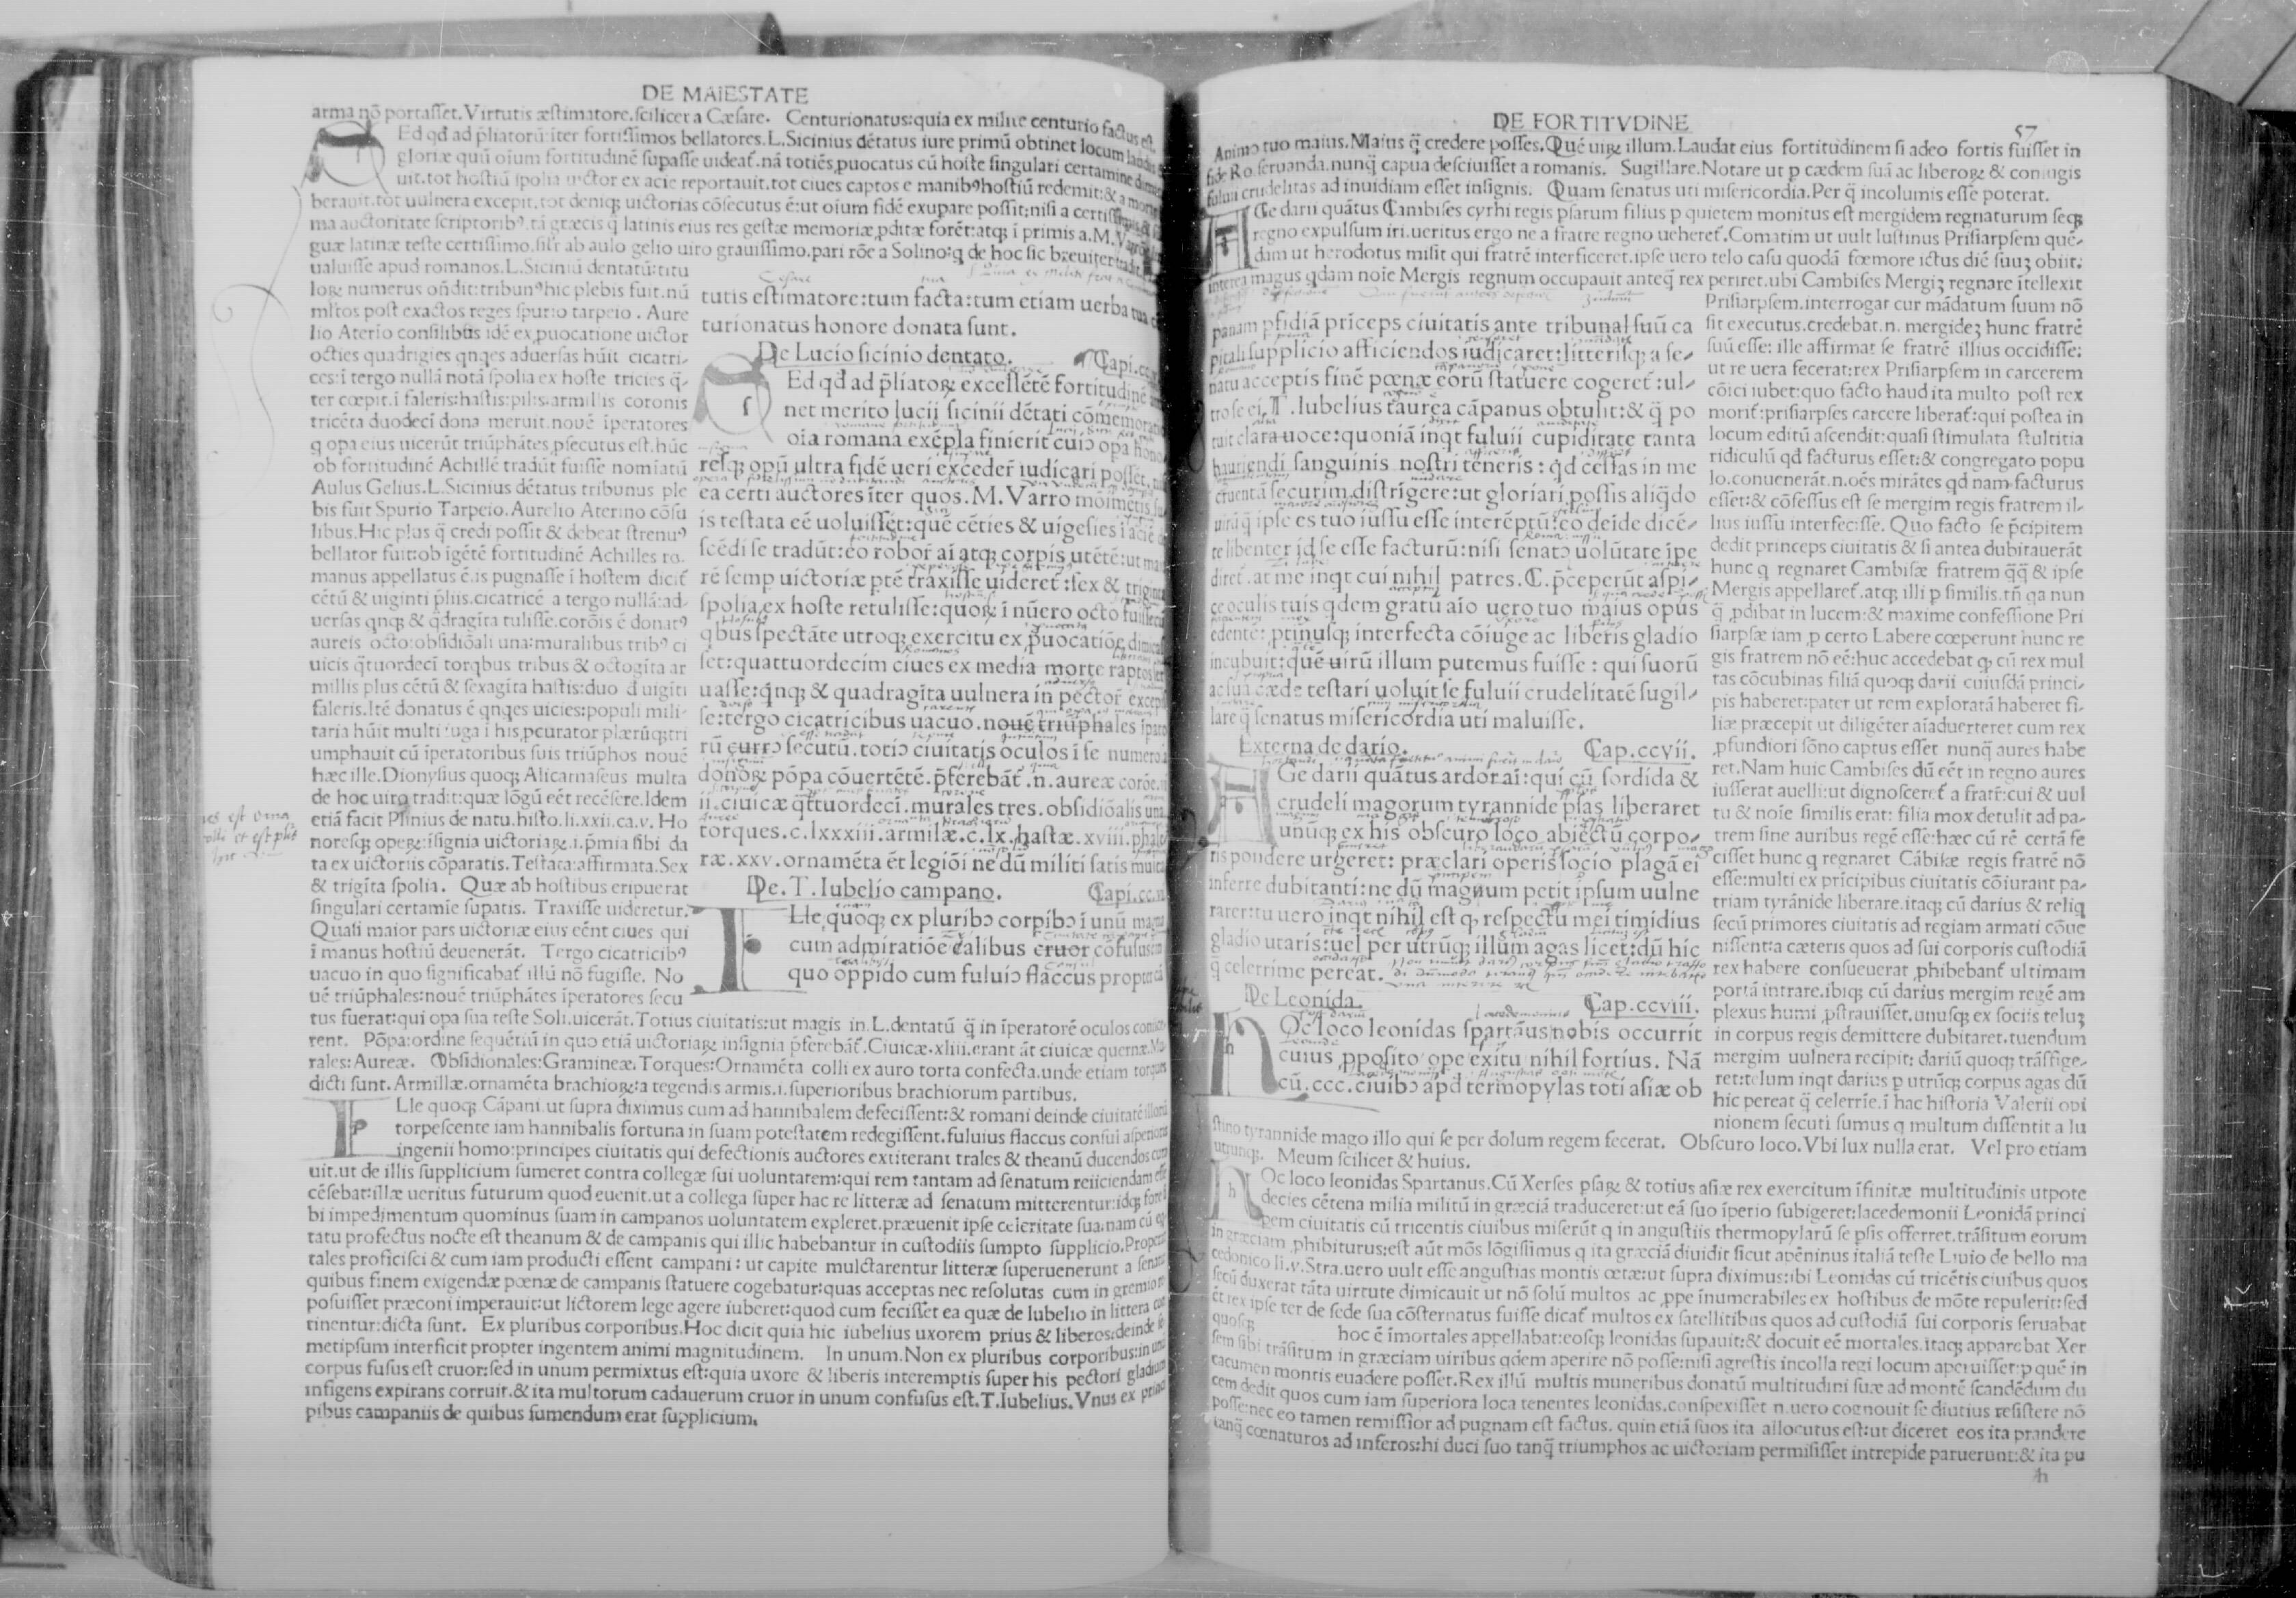 DE MAIESTATE
arma nō portasset. Virtutis æstimatore. scilicet a Cæsare. Centurionatus: quia ex milite centurio factus est.
Ed qđ ad p̄liatorū iter fortissimos bellatores. L. Sicinius dētatus iure primū obtinet locum
gloriæ quū oīum fortitudinē supasse uideat̄. nā totiēs puocatus cū hoste singulari certamine
uit. tot hostiū spolia uictor ex acie reportauit. tot ciues captos e manibꝰ hostiū redemit: & a morte
berauit. tot uulnera excepit. tot deniqꝫ uictorias cōsecutus ē: ut oīum fidē exupare possit: nisi a
ma auctoritate scriptoribꝰ. tā græcis q̄ latinis eius res gestæ memoriæ pditæ forēt: atqꝫ i primis a. M.
guæ latinæ teste certissimo. siłr ab aulo gelio uiro grauissimo. pari rōe a Solino: q de hoc sic breuiter
ualuisse apud romanos. L. Siciniū dentatū: titu
loꝝ numerus oñdit: tribunꝰ hic plebis fuit. nū
mltos post exactos reges spurio tarpeio. Aure
lio Aterio consilibus idē ex puocatione uictor
octies quadrigies qnqes aduersas hūit cicatri-
ces: i tergo nullā notā spolia ex hoste tricies q̄-
ter cœpit. i faleris: hastis: pilis: armillis coronis
tricēta duodeci dona meruit. nouē iperatores
q opa eius uicerūt triūphātes psecutus est. hūc
ob fortitudinē Achillē tradūt fuisse nomiatū
Aulus Gelius. L. Sicinius dētatus tribunus ple
bis fuit Spurio Tarpeio. Aurelio Aterino cōsu
libus. Hic plus q̄ credi possit & debeat strenuꝰ
bellator fuit: ob igētē fortitudinē Achilles ro.
manus appellatus ē. is pugnasse i hostem dicit̄
cētū & uiginti p̄liis. cicatricē a tergo nullā: ad-
uersas qnqꝫ & q̄dragita tulisse. corōis ē donatꝰ
aureis octo: obsidiōali una: muralibus tribꝰ ci
uicis q̄tuordeci torqbus tribus & octogita ar
millis plus cētū & sexagita hastis: duo đ uigiti
faleris. Itē donatus ē qnqes uicies: populi mili-
taria hūit multi iuga i his. pcurator plærūqꝫ tri
umphauit cū iperatoribus suis triūphos nouē
hæc ille. Dionysius quoqꝫ Alicarnaseus multa
de hoc uiro tradit: quæ lōgū eēt recēsere. Idem
etiā facit Plinius de natu. histo. li. xxii. ca. v. Ho
noresqꝫ opeꝝ: isignia uictoriaꝝ. i. p̄mia sibi da
ta ex uictoriis cōparatis. Testata: affirmata. Sex
& trigita spolia. Quæ ab hostibus eripuerat
singulari certamie supatis. Traxisse uideretur.
Quasi maior pars uictoriæ eius eēnt ciues qui
i manus hostiū deuenerāt. Tergo cicatricibꝰ
uacuo in quo significabat̄ illū nō fugisse. No
uē triūphales: nouē triūphātes iperatores secu
tus fuerat: qui opa sua teste Soli. uicerāt. Totius ciuitatis: ut magis in L. dentatū q̄ in iperatorē oculos
rent. Pōpa: ordine sequētiū in quo etiā uictoriaꝝ insignia p̄ferebāt̄. Ciuicæ. xliii. erant āt ciuicæ quernæ. Mu
rales: Aureæ. Obsidionales: Gramineæ. Torques: Ornamēta colli ex auro torta confecta. unde etiam torques
dicti sunt. Armillæ. ornamēta brachioꝝ: a tegendis armis. i. superioribus brachiorum partibus.
Lle quoqꝫ Cāpani. ut supra diximus cum ad hannibalem defecissent: & romani deinde ciuitatē illorū
torpescente iam hannibalis fortuna in suam potestatem redegissent. fuluius flaccus consul asperioris
ingenii homo: principes ciuitatis qui defectionis auctores extiterant trales & theanū ducendos
uit. ut de illis supplicium sumeret contra collegæ sui uoluntatem: qui rem tantam ad senatum reiiciendam
cēsebat: illæ ueritus futurum quod euenit. ut a collega super hac re litteræ ad senatum mitterentur: idqꝫ
bi impedimentum quominus suam in campanos uoluntatem expleret. præuenit ipse celeritate sua: nam cū
tatu profectus nocte est theanum & de campanis qui illic habebantur in custodiis sumpto supplicio. Propere
tales proficisci & cum iam producti essent campani: ut capite mulctarentur litteræ superuenerunt a senatu
quibus finem exigendæ pœnæ de campanis statuere cogebatur: quas acceptas nec resolutas cum in gremio
posuisset præconi imperauit: ut lictorem lege agere iuberet: quod cum fecisset ea quæ de Iubelio in littera
tinentur: dicta sunt. Ex pluribus corporibus. Hoc dicit quia hic iubelius uxorem prius & liberos: deinde
metipsum interficit propter ingentem animi magnitudinem. In unum. Non ex pluribus corporibus: in
corpus fusus est cruor: sed in unum permixtus est: quia uxore & liberis interemptis super his pectori gladium
infigens expirans corruit. & ita multorum cadauerum cruor in unum confusus est. T. Iubelius. Vnus ex
pibus campaniis de quibus sumendum erat supplicium.
tutis estimatore: tum facta: tum etiam uerba tua
turionatus honore donata sunt.
De Lucio sicinio dentato. Capi. cc
Ed qđ ad p̄liatoꝝ excellētē fortitudinē
net merito lucii sicinii dētati cōmemoratio
oīa romana exēpla finierit cuiꝰ opa
resqꝫ opū ultra fidē ueri exceder̄ iudicari posset.
ea certi auctores iter quos. M. Varro moimētis
is testata eē uoluisset: quē cēties & uigesies i aciē
scēdi se tradūt: eo robor̄ ai atqꝫ corpis utētē: ut
rē semp uictoriæ ptē traxisse uideret̄: sex & triginta
spolia ex hoste retulisse: quoꝝ i nūero octo fuisse
qbus spectāte utroqꝫ exercitu ex puocatiōe
set: quattuordecim ciues ex media morte raptos
uasse: qnqꝫ & quadragita uulnera in pector̄
se: tergo cicatricibus uacuo. nouē triūphales
rū currꝰ secutū. totiꝰ ciuitatis oculos i se numero
donoꝝ pōpa cōuertētē. p̄ferebāt̄. n. aureæ corōe.
ii. ciuicæ qttuordeci. murales tres. obsidiōalis una
torques. c. lxxxiii. armilæ. c. lx. hastæ. xviii. phale
ræ. xxv. ornamēta ēt legiōi ne dū militi satis multa
De. T. Iubelio campano. Capi. cc.
Lle quoqꝫ ex pluribꝰ corpibꝰ i unū
cum admiratiōe calibus cruor cōfusus
quo oppido cum fuluiꝰ flaccus propter
DE FORTITVDINE 57
Animo tuo maius. Maius q̄ credere posses. Quē uiꝝ illum. Laudat eius fortitudinem si adeo fortis fuisset in
fide Ro. seruanda. nunq̄ capua desciuisset a romanis. Sugillare. Notare ut p cædem suā ac liberoꝝ & coniugis
fuluii crudelitas ad inuidiam esset insignis. Quam senatus uti misericordia. Per q̄ incolumis esse poterat.
Ge darii quātus Cambises cyrhi regis psarum filius p quietem monitus est mergidem regnaturum seqꝫ
regno expulsum iri. ueritus ergo ne a fratre regno ueheret̄. Comatim ut uult Iustinus Prisiarpsem quē-
dam ut herodotus misit qui fratrē interficeret. ipse uero telo casu quodā fœmore ictus diē suuꝫ obiit:
interea magus qdam noīe Mergis regnum occupauit anteq̄ rex periret. ubi Cambises Mergiꝫ regnare itellexit
panam pfidiā priceps ciuitatis ante tribunal suū ca
pitali supplicio afficiendos iudicaret: litterisqꝫ a se-
natu acceptis finē pœnæ eorū statuere cogeret̄: ul-
tro se ei. T. Iubelius taurea cāpanus obtulit: & q̄ po
tuit clara uoce: quoniā inqt fuluii cupiditate tanta
hauriendi sanguinis nostri teneris: qđ cessas in me
cruentā securim distrigere: ut gloriari possis aliq̄do
uirū q̄ ipse es tuo iussu esse interēptū: eo deide dicē-
te libenter id se esse facturū: nisi senatꝰ uolūtate ipe
diret̄. at me inqt cui nihil patres. C. p̄ceperūt aspi-
ce oculis tuis qdem gratū aio uero tuo maius opus
edente: ptinusqꝫ interfecta cōiuge ac liberis gladio
incubuit: quē uirū illum putemus fuisse: qui suorū
ac sua cæde testari uoluit se fuluii crudelitatē sugil-
lare q̄ senatus misericordia uti maluisse.
Externa de dario. Cap. ccvii.
Ge darii quātus ardor. ai: qui cū sordida &
crudeli magorum tyrannide psas liberaret
unūqꝫ ex his obscuro loco abiectū corpo-
ris pondere urgeret: præclari operis socio plagā ei
inferre dubitanti: ne dū magnum petit ipsum uulne
raret: tu uero inqt nihil est q̨ respectu mei timidius
gladio utaris: uel per utrūqꝫ illum agas licet: dū hic
q̄ celerrime pereat.
De Leonida. Cap. ccviii.
Oc loco leonidas spartāus nobis occurrit
cuius pposito ope exitu nihil fortius. Nā
cū. ccc. ciuibꝰ apđ termopylas toti asiæ ob
Prisiarpsem. interrogat cur mādatum suum nō
sit executus. credebat. n. mergideꝫ hunc fratrē
suū esse: ille affirmat se fratrē illius occidisse:
ut re uera fecerat: rex Prisiarpsem in carcerem
cōici iubet: quo facto haud ita multo post rex
morit̄: prisiarpses carcere liberat̄: qui postea in
locum editū ascendit: quasi stimulata stultitia
ridiculū qđ facturus esset: & congregato popu
lo. conuenerāt. n. oēs mirātes qđ nam facturus
esset: & cōfessus est se mergim regis fratrem il-
lius iussu interfecisse. Quo facto se p̄cipitem
dedit princeps ciuitatis & si antea dubitauerāt
hunc q regnaret Cambisæ fratrem q̄q̄ & ipse
Mergis appellaret̄. atqꝫ illi p similis. tñ qa nun
q̄ pdibat in lucem: & maxime confessione Pri
siarpsæ iam p certo Labere cœperunt hunc re
gis fratrem nō eē: huc accedebat q̨ cū rex mul
tas cōcubinas filiā quoqꝫ darii cuiusdā princi-
pis haberet: pater ut rem exploratā haberet fi-
liæ præcepit ut diligēter aiaduerteret cum rex
pfundiori sōno captus esset nunq̄ aures habe
ret. Nam huic Cambises dū eēt in regno aures
iusserat auelli: ut dignosceret̄ a fratr̄: cui & uul
tu & noīe similis erat: filia mox detulit ad pa-
trem sine auribus regē esse: hæc cū rē certā fe
cisset hunc q regnaret Cābisæ regis fratrē nō
esse: multi ex pricipibus ciuitatis cōiurant pa-
triam tyrānide liberare. itaqꝫ cū darius & reliq
secū primores ciuitatis ad regiam armati cōue
nissent: a cæteris quos ad sui corporis custodiā
rex habere consueuerat phibebant̄ ultimam
portā intrare. ibiqꝫ cū darius mergim regē am
plexus humi pstrauisset. unusqꝫ ex sociis teluꝫ
in corpus regis demittere dubitaret. tuendum
mergim uulnera recipit: dariū quoqꝫ trāsfige-
ret: telum inqt darius p utrūqꝫ corpus agas dū
hic pereat q̄ celerrīe. i hac historia Valerii opi
nionem secuti sumus q multum dissentit a Iu
stino tyrannide mago illo qui se per dolum regem fecerat. Obscuro loco. Vbi lux nulla erat. Vel pro etiam
utrunqꝫ. Meum scilicet & huius.
Oc loco leonidas Spartanus. Cū Xerses psaꝝ & totius asiæ rex exercitum ifinitæ multitudinis utpote
decies cētena milia militū in græciā traduceret: ut eā suo iperio subigeret: lacedemonii Leonidā princi
pem ciuitatis cū tricentis ciuibus miserūt q in angustiis thermopylarū se psis offerret. trāsitum eorum
in græciam phibiturus: est aūt mōs lōgissimus q ita græciā diuidit sicut apēninus italiā teste Liuio de bello ma
cedonico li. v. Stra. uero uult esse angustias montis œtæ: ut supra diximus: ibi Leonidas cū tricētis ciuibus quos
secū duxerat tāta uirtute dimicauit ut nō solū multos ac ppe inumerabiles ex hostibus de mōte repulerit: sed
ēt rex ipse ter de sede sua cōsternatus fuisse dicat̄ multos ex satellitibus quos ad custodiā sui corporis seruabat
quosqꝫ hoc ē imortales appellabat: eosqꝫ leonidas supauit: & docuit eē mortales. itaqꝫ apparebat Xer
sem sibi trāsitum in græciam uiribus qdem aperire nō posse: nisi agrestis incolla regi locum aperuisset: p quē in
cacumen montis euadere posset. Rex illū multis muneribus donatū multitudini suæ ad montē scandēdum du
cem dedit quos cum iam superiora loca tenentes leonidas. conspexisset n. uero cognouit se diutius resistere nō
posse: nec eo tamen remissior ad pugnam est factus. quin etiā suos ita allocutus est: ut diceret eos ita prandere
tanq̄ cœnaturos ad inferos: hi duci suo tanq̄ triumphos ac uictoriam permisisset intrepide paruerunt: & ita pu